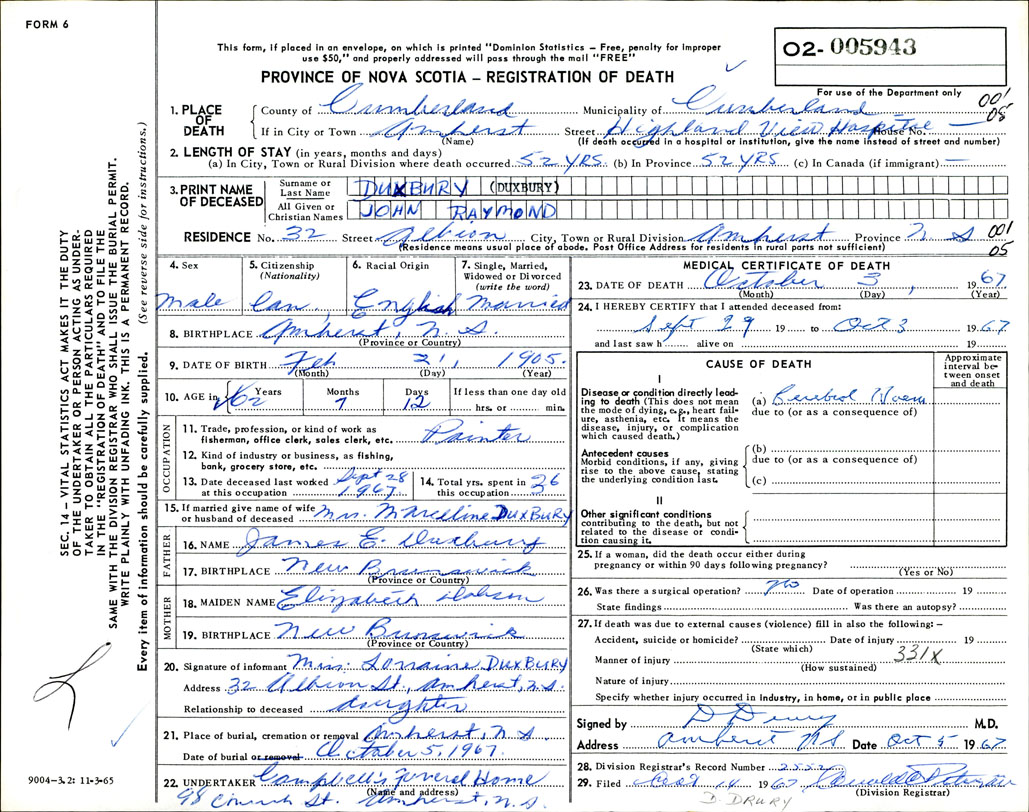 FORM 6
This form, if placed in an envelope, on which is printed "Dominion Statistics – Free, penalty for improper
use $50," and properly addressed will pass through the mail "FREE"
PROVINCE OF NOVA SCOTIA – REGISTRATION OF DEATH
02- 005943
For use of the Department only
001
05
1. PLACE OF DEATH
County of Cumberland Municipality of Cumberland
If in City or Town Amherst Street Highland View Hospital House No. —
(Name) (If death occurred in a hospital or institution, give the name instead of street and number)
2. LENGTH OF STAY (in years, months and days)
(a) In City, Town or Rural Division where death occurred 52 YRS (b) In Province 52 YRS (c) In Canada (if immigrant) —
3. PRINT NAME OF DECEASED
Surname or Last Name DUXBURY (DUXBURY)
All Given or Christian Names JOHN RAYMOND
RESIDENCE No. 32 Street Albion City, Town or Rural Division Amherst Province N S
001
05
(Residence means usual place of abode. Post Office Address for residents in rural parts not sufficient)
4. Sex
Male
5. Citizenship (Nationality)
Can.
6. Racial Origin
English
7. Single, Married, Widowed or Divorced (write the word)
Married
8. BIRTHPLACE Amherst, N. S.
(Province or Country)
9. DATE OF BIRTH Feb 21, 1905.
(Month) (Day) (Year)
10. AGE in Years 62 Months 7 Days 12 If less than one day old
hrs. or min.
OCCUPATION
11. Trade, profession, or kind of work as
fisherman, office clerk, sales clerk, etc. Painter
12. Kind of industry or business, as fishing,
bank, grocery store, etc.
13. Date deceased last worked at this occupation Sept 28 1967
14. Total yrs. spent in this occupation 36
15. If married give name of wife
or husband of deceased Mrs. Marceline DUXBURY
FATHER
16. NAME James E. Duxbury
17. BIRTHPLACE New Brunswick
(Province or Country)
MOTHER
18. MAIDEN NAME Elizabeth Dobson
19. BIRTHPLACE New Brunswick
(Province or Country)
20. Signature of informant Miss. Lorraine DUXBURY
Address 32 Albion St., Amherst, N.S.
Relationship to deceased daughter
21. Place of burial, cremation or removal Amherst, N. S.
Date of burial or removal October 5, 1967.
22. UNDERTAKER Campbell's Funeral Home
(Name and address)
98 Church St. Amherst, N.S.
MEDICAL CERTIFICATE OF DEATH
23. DATE OF DEATH October 3, 1967
(Month) (Day) (Year)
24. I HEREBY CERTIFY that I attended deceased from:
Sept 29 19 to Oct 3 1967
and last saw h alive on 19
CAUSE OF DEATH
Approximate interval between onset and death
I
Disease or condition directly leading to death (This does not mean the mode of dying, e.g., heart failure, asthenia, etc. It means the disease, injury, or complication which caused death.)
(a) Cerebral Haem
due to (or as a consequence of)
Antecedent causes
Morbid conditions, if any, giving rise to the above cause, stating the underlying condition last.
(b)
due to (or as a consequence of)
(c)
II
Other significant conditions
contributing to the death, but not related to the disease or condition causing it.
25. If a woman, did the death occur either during
pregnancy or within 90 days following pregnancy?
(Yes or No)
26. Was there a surgical operation? No Date of operation 19
State findings Was there an autopsy?
27. If death was due to external causes (violence) fill in also the following: –
Accident, suicide or homicide? Date of injury 19
(State which)
331X
Manner of injury
(How sustained)
Nature of injury
Specify whether injury occurred in industry, in home, or in public place
Signed by D Drury M.D.
Address Amherst NS Date Oct 5 1967
28. Division Registrar's Record Number 2552
29. Filed Oct 14 1967
(Division Registrar)
D. DRURY
SEC. 14 – VITAL STATISTICS ACT MAKES IT THE DUTY
OF THE UNDERTAKER OR PERSON ACTING AS UNDER-
TAKER TO OBTAIN ALL THE PARTICULARS REQUIRED
IN THE "REGISTRATION OF DEATH" AND TO FILE THE
SAME WITH THE DIVISION REGISTRAR WHO SHALL ISSUE THE BURIAL PERMIT.
WRITE PLAINLY WITH UNFADING INK. THIS IS A PERMANENT RECORD.
Every item of information should be carefully supplied. (See reverse side for instructions.)
9004-3.2: 11-3-65